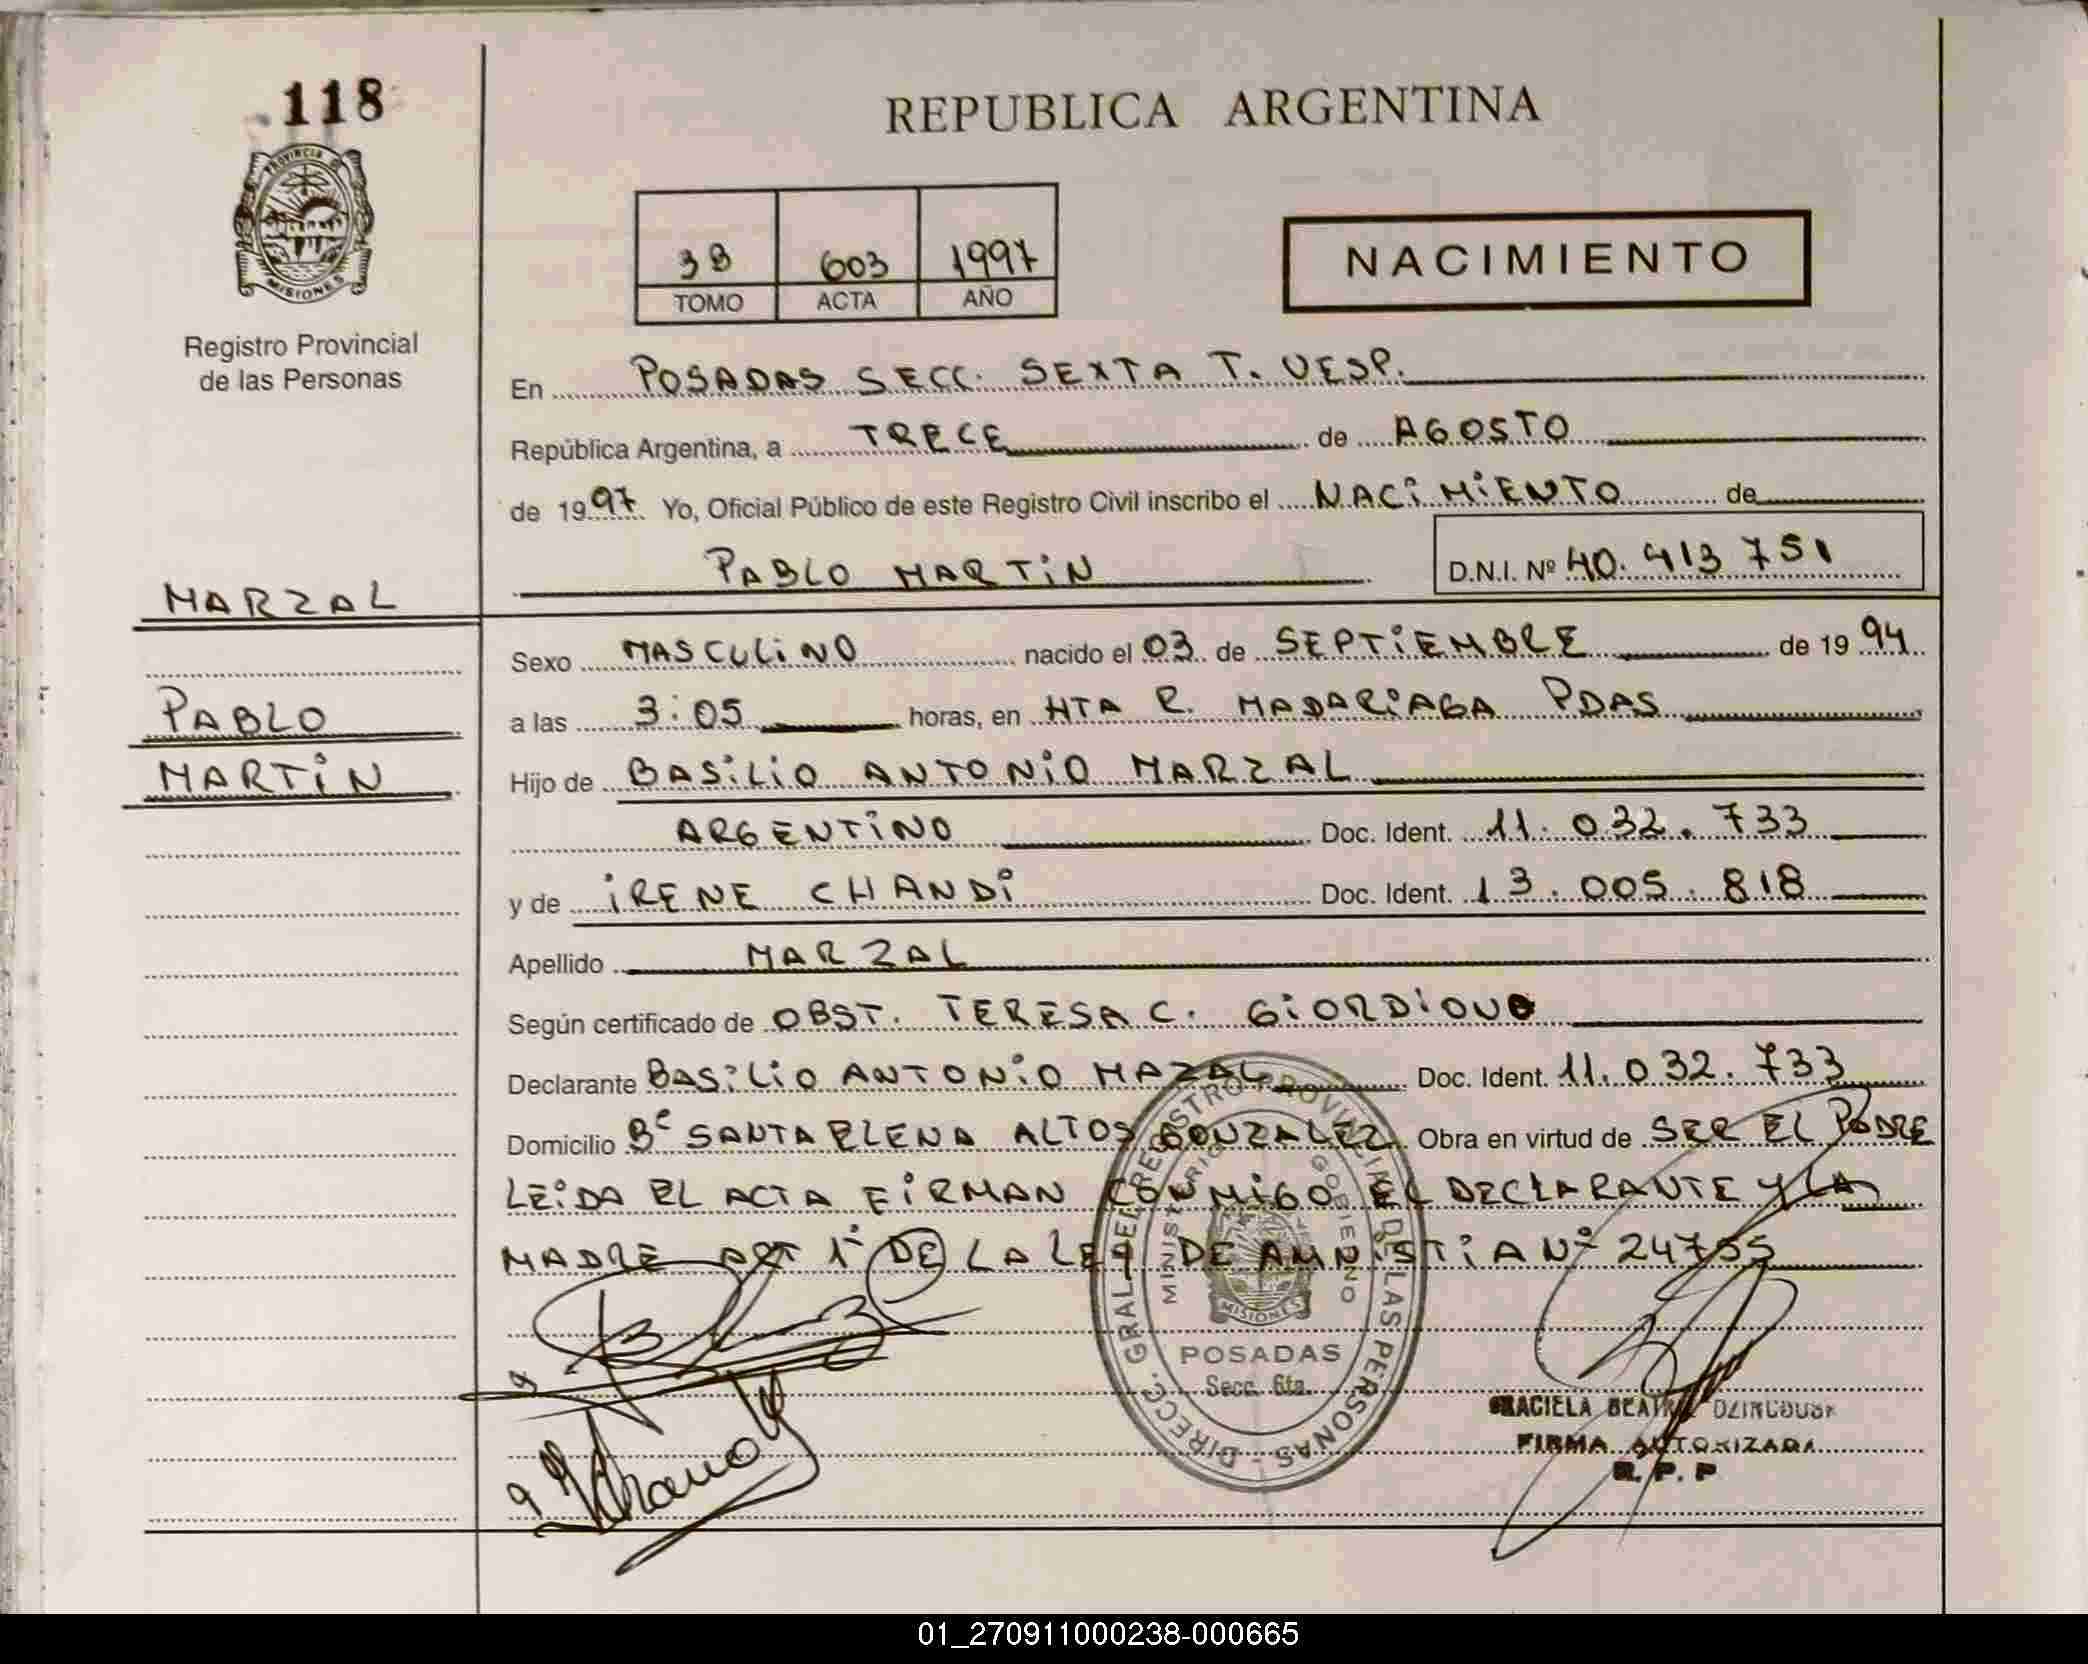 118
REPUBLICA ARGENTINA
PROVINCIA DE
MISIONES
Registro Provincial
de las Personas
3B 603 1997
TOMO ACTA AÑO
NACIMIENTO
En POSADAS SECC. SEXTA T. VESP.
República Argentina, a TRECE de AGOSTO
de 1997 Yo, Oficial Público de este Registro Civil inscribo el NACIMIENTO de
PABLO MARTIN D.N.I. Nº 40.413 751
MARZAL
PABLO
MARTIN
Sexo MASCULINO nacido el 03 de SEPTIEMBRE de 1994
a las 3:05 horas, en HTA R. MADARIAGA PDAS
Hijo de BASILIO ANTONIO MARZAL
ARGENTINO Doc. Ident. 11.032.733
y de IRENE CHANDI Doc. Ident. 13.005.818
Apellido MARZAL
Según certificado de OBST. TERESA C.
Declarante BASILIO ANTONIO MAZAL Doc. Ident. 11.032.733
Domicilio Bº SANTA ELENA ALTOS GONZALEZ Obra en virtud de SER EL PADRE
LEIDA EL ACTA FIRMAN CONMIGO EL DECLARANTE Y LA
MADRE ART 1º DE LA LEY DE AMNISTIA Nº 24755
DIRECC. GRAL. DEL REGISTRO PROVINCIAL DE LAS PERSONAS
MINISTERIO GOBIERNO
MISIONES
POSADAS
Secc. 6ta.
GRACIELA BEATRIZ
FIRMA AUTORIZADA
R. P. P
01_270911000238-000665